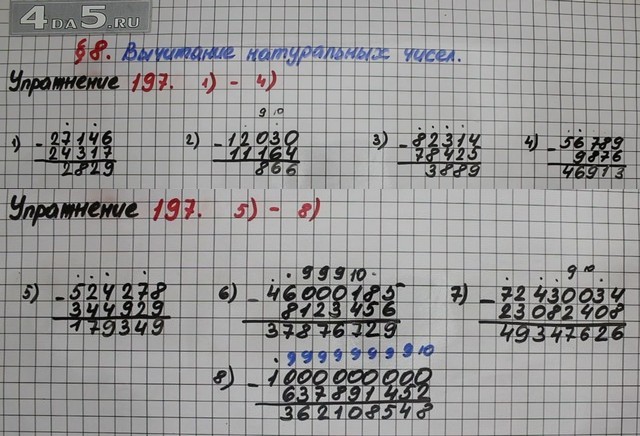 4DA5.RU
§8. Вычитание натуральных чисел.
Упражнение 197. 1) - 4)
9 10
1) - 27146 2) - 12030 3) - 82314 4) - 56789
24317 11164 78425 9876
2829 866 3889 46913
Упражнение 197. 5) - 8)
9 9 9 10 9 10
5) - 524278 6) - 46000185 7) - 72430034
344929 8123456 23082408
179349 37876729 49347626
9 9 9 9 9 9 9 9 10
8) - 1000000000
637891452
362108548